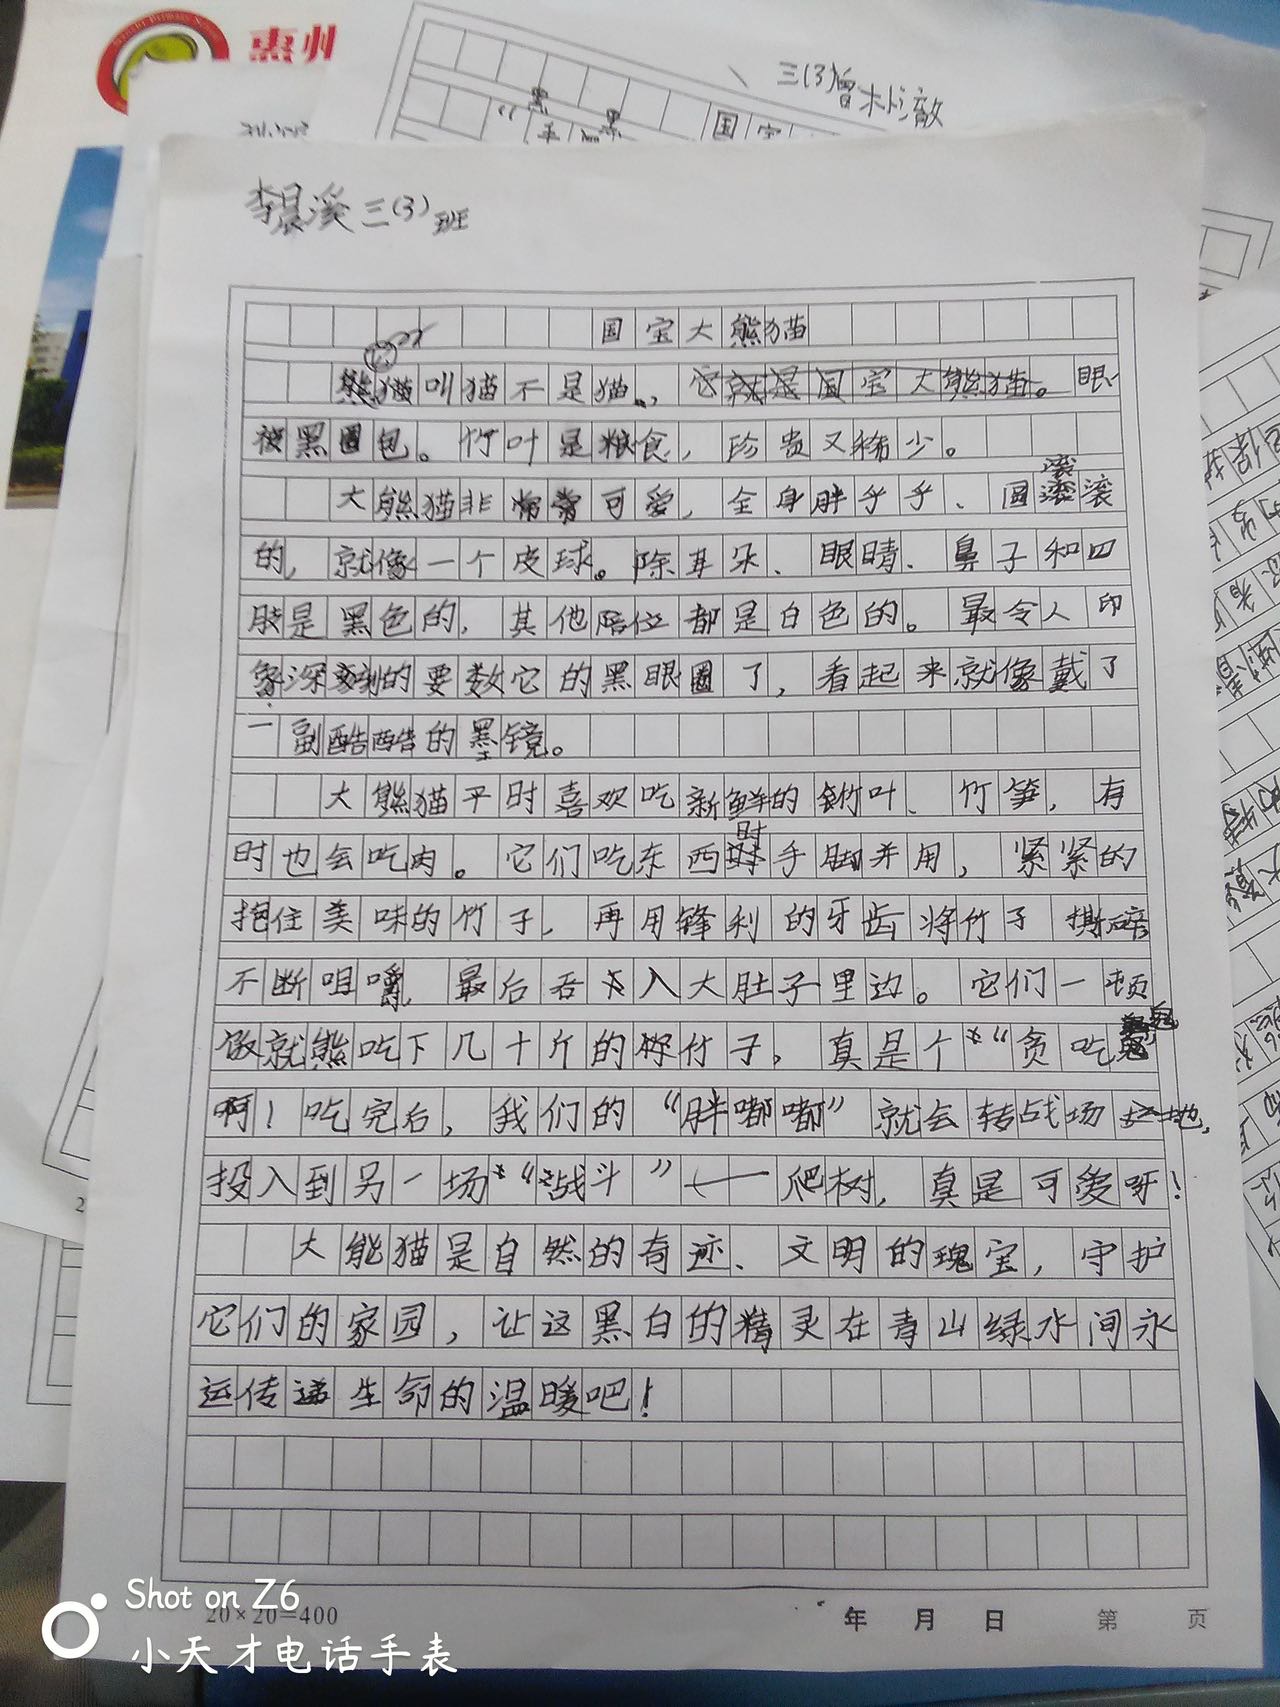 惠州
三(3)曾
国宝
李晨溪三(3)班
国宝大熊猫
叫猫不是猫。，它就是国宝大熊猫。眼
被黑圈包。竹叶是粮食，珍贵又稀少。
大熊猫非常可爱，全身胖乎乎、圆滚滚
的，就像一个皮球。除耳朵、眼睛、鼻子和四
肢是黑色的，其他陪位都是白色的。最令人印
象深刻的要数它的黑眼圈了，看起来就像戴了
一副酷酷的墨镜。
大熊猫平时喜欢吃新鲜的竹叶、竹笋，有
时也会吃肉。它们吃东西时手脚并用，紧紧的
抱住美味的竹子，再用锋利的牙齿将竹子撕碎
不断咀嚼，最后吞入大肚子里边。它们一顿
饭就能吃下几十斤的竹子，真是个“贪吃鬼”
啊！吃完后，我们的“胖嘟嘟”就会转战场地，
投入到另一场“战斗”——爬树，真是可爱呀！
大能猫是自然的奇迹、文明的瑰宝，守护
它们的家园，让这黑白的精灵在青山绿水间永
远传递生命的温暖吧！
20×20=400
年 月 日 第 页
Shot on Z6
小天才电话手表